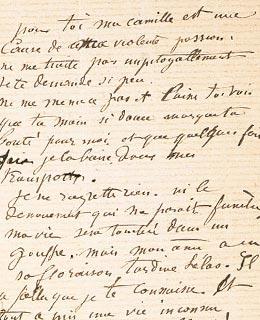 pour toi ma camille est une
cause de violente passion.
ne me traite pas impitoyablement
je te demande si peu.
ne me menace pas et laisse toi voir
que ta main si douce marque ta
bonté pour moi et que quelques fois
je la baise dans mes
transports.
Je ne regrette rien. ni le
denouement qui me parait funèbre
ma vie sera tombée dans un
gouffre. mais mon ame a eu
sa floraison, tardive hélas. Il
a fallu que je te connaisse Et
tout a pris une vie inconnu